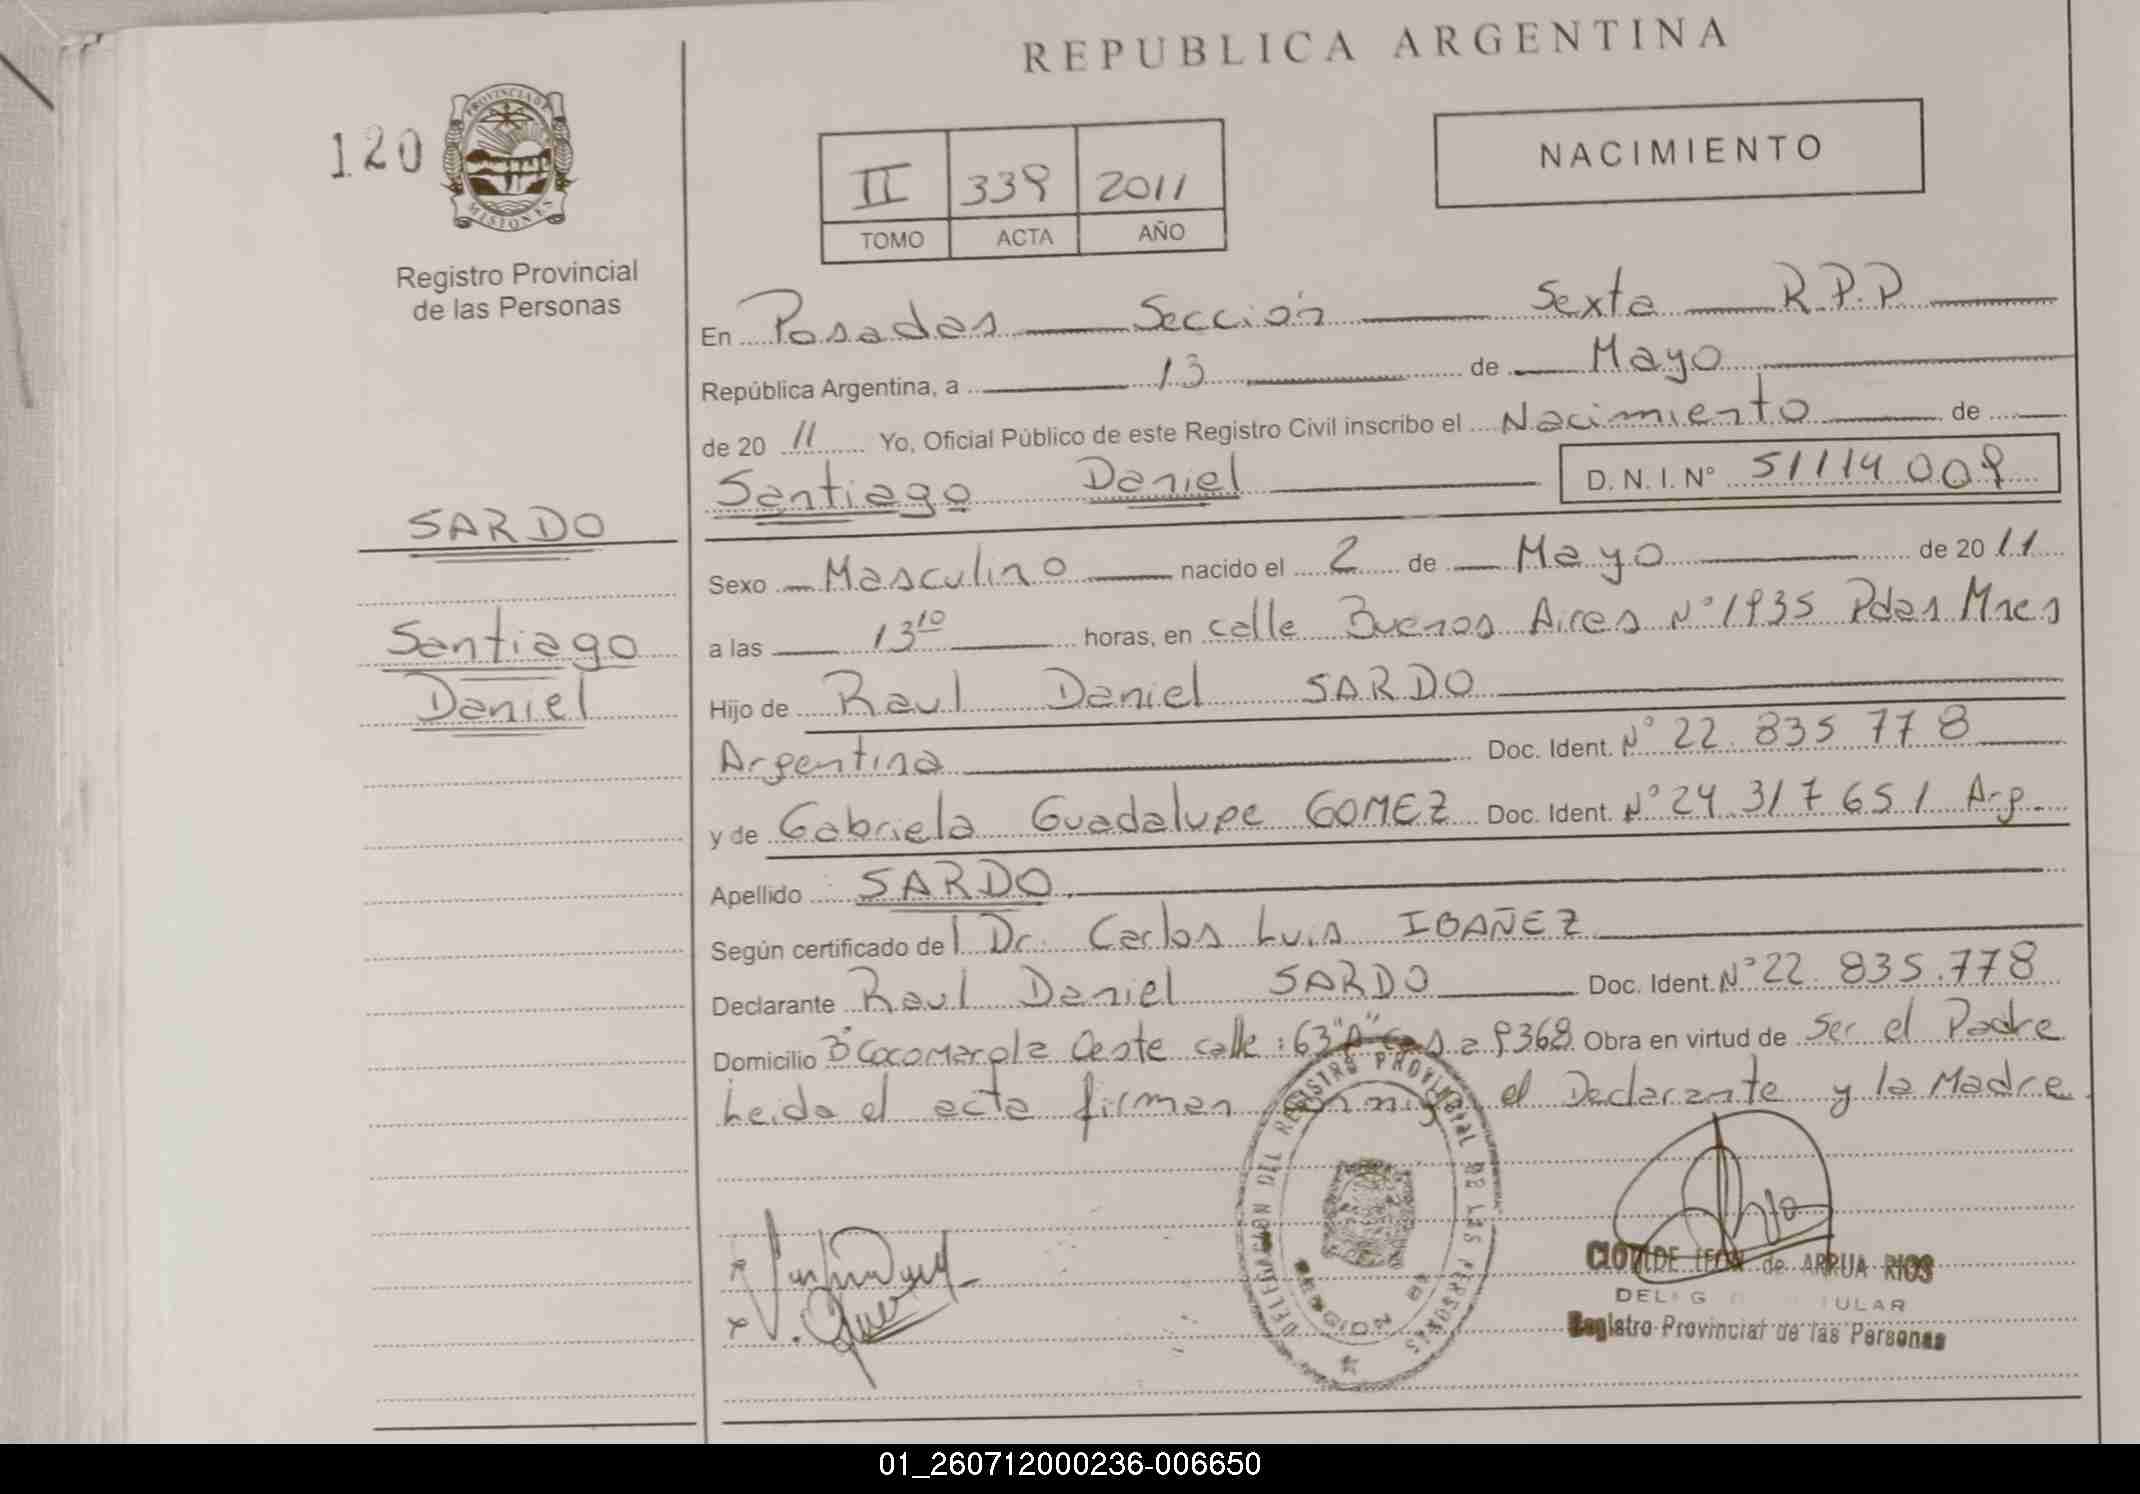 REPUBLICA ARGENTINA
120
PROVINCIA DE
MISIONES
Registro Provincial
de las Personas
II 339 2011
TOMO ACTA AÑO
NACIMIENTO
En Posadas Sección Sexta R.P.P
República Argentina, a 13 de Mayo
de 20 11 Yo, Oficial Público de este Registro Civil inscribo el Nacimiento de
Santiago Daniel D.N.I.Nº 51114009
SARDO
Santiago
Daniel
Sexo Masculino nacido el 2 de Mayo de 20 11
a las 13 10 horas, en calle Buenos Aires Nº 1935 Pdas Mnes
Hijo de Raul Daniel SARDO
Argentina Doc. Ident. Nº 22.835 778
y de Gabriela Guadalupe GOMEZ Doc. Ident. Nº 24.317651 Arg
Apellido SARDO
Según certificado de l Dr. Carlos Luis IBAÑEZ
Declarante Raul Daniel SARDO Doc. Ident. Nº 22.835.778
Domicilio Bº Cocomarola Oeste calle: 63 "A" Casa 9368 Obra en virtud de Ser el Padre
Leida el acta firman conmigo el Declarante y la Madre.
DELEGACION DEL REGISTRO PROVINCIAL DE LAS PERSONAS
CLOTILDE LEON de ARRUA RIOS
Registro Provincial de las Personas
01_260712000236-006650